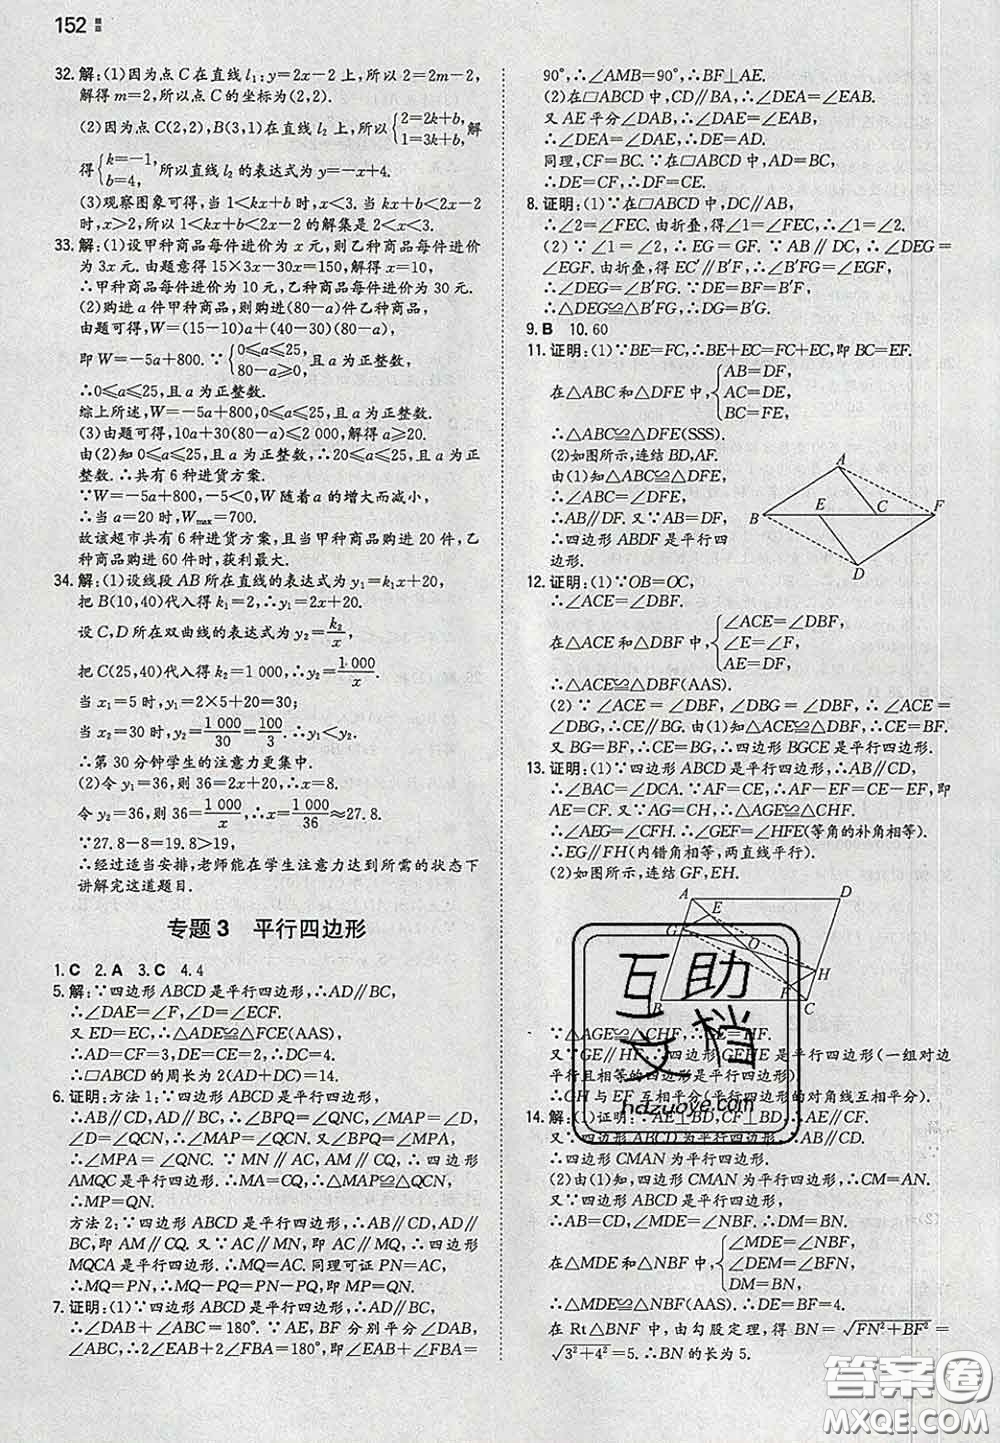 152
32.解:(1)因为点C在直线l₁:y=2x-2上,所以2=2m-2,
解得m=2,所以点C的坐标为(2,2).
(2)因为点C(2,2),B(3,1)在直线l₂上,所以{2=2k+b, 1=3k+b,解
得{k=-1, b=4,所以直线l₂的表达式为y=-x+4.
(3)观察图象可得,当1<kx+b时,x<3,当kx+b<2x-2
时,x>2,所以1<kx+b<2x-2的解集是2<x<3.
33.解:(1)设甲种商品每件进价为x元,则乙种商品每件进价
为3x元.由题意得15×3x-30x=150,解得x=10,
∴甲种商品每件进价为10元,乙种商品每件进价为30元.
(2)购进a件甲种商品,则购进(80-a)件乙种商品,
由题可得,W=(15-10)a+(40-30)(80-a),
即W=-5a+800.∵{0≤a≤25, 80-a≥0,且a为正整数,
∴0≤a≤25,且a为正整数.
综上所述,W=-5a+800,0≤a≤25,且a为正整数.
(3)由题可得,10a+30(80-a)≤2 000,解得a≥20.
由(2)知0≤a≤25,且a为正整数,∴20≤a≤25,且a为正
整数.∴共有6种进货方案.
∵W=-5a+800,-5<0,W随着a的增大而减小,
∴当a=20时,Wmax=700.
故该超市共有6种进货方案,且当甲种商品购进20件,乙
种商品购进60件时,获利最大.
34.解:(1)设线段AB所在直线的表达式为y₁=k₁x+20,
把B(10,40)代入得k₁=2,∴y₁=2x+20.
设C,D所在双曲线的表达式为y₂=k₂/x,
把C(25,40)代入得k₂=1 000,∴y₂=1 000/x.
当x₁=5时,y₁=2×5+20=30;
当x₂=30时,y₂=1 000/30=100/3,∴y₁<y₂.
∴第30分钟学生的注意力更集中.
(2)令y₁=36,则36=2x+20,∴x=8.
令y₂=36,则36=1 000/x,∴x=1 000/36≈27.8.
∵27.8-8=19.8>19,
∴经过适当安排,老师能在学生注意力达到所需的状态下
讲解完这道题目.
专题3 平行四边形
1.C 2.A 3.C 4.4
5.解:∵四边形ABCD是平行四边形,∴AD∥BC,
∴∠DAE=∠F,∠D=∠ECF.
又ED=EC,∴△ADE≌△FCE(AAS).
∴AD=CF=3,DE=CE=2,∴DC=4.
∴□ABCD的周长为2(AD+DC)=14.
6.证明:方法1:∵四边形ABCD是平行四边形,
∴AB∥CD,AD∥BC,∴∠BPQ=∠QNC,∠MAP=∠D,
∠D=∠QCN,∴∠MAP=∠QCN.又∵∠BPQ=∠MPA,
∴∠MPA=∠QNC.∵MN∥AC,AM∥QC,∴四边形
AMQC是平行四边形.∴MA=CQ,∴△MAP≌△QCN,
∴MP=QN.
方法2:∵四边形ABCD是平行四边形,∴AB∥CD,AD∥BC,
即AM∥CQ.又∵AC∥MN,即AC∥MQ,∴四边形
MQCA是平行四边形.∴MQ=AC.同理可证PN=AC,
∴MQ=PN,∴MQ-PQ=PN-PQ,即MP=QN.
7.证明:(1)∵四边形ABCD是平行四边形,∴AD∥BC,
∴∠DAB+∠ABC=180°.∵AE,BF分别平分∠DAB,
∠ABC,∴2∠EAB+2∠FBA=180°,即∠EAB+∠FBA=
90°,∴∠AMB=90°,∴BF⊥AE.
(2)在□ABCD中,CD∥BA,∴∠DEA=∠EAB.
又AE平分∠DAB,∴∠DAE=∠EAB.
∴∠DEA=∠DAE,∴DE=AD.
同理,CF=BC.∵在□ABCD中,AD=BC,
∴DE=CF,∴DF=CE.
8.证明:(1)∵在□ABCD中,DC∥AB,
∴∠2=∠FEC.由折叠,得∠1=∠FEC,∴∠1=∠2.
(2)∵∠1=∠2,∴EG=GF.∵AB∥DC,∴∠DEG=
∠EGF.由折叠,得EC′∥B′F,∴∠B′FG=∠EGF,
∴∠DEG=∠B′FG.∵DE=BF=B′F,
∴△DEG≌△B′FG,∴DG=B′G.
9.B 10.60
11.证明:(1)∵BE=FC,∴BE+EC=FC+EC,即BC=EF.
在△ABC和△DFE中,{AB=DF, AC=DE, BC=FE,
∴△ABC≌△DFE(SSS).
(2)如图所示,连结BD,AF.
由(1)知△ABC≌△DFE,
∴∠ABC=∠DFE,
∴AB∥DF.又∵AB=DF,
∴四边形ABDF是平行四
边形.
A
B
E
C
F
D
12.证明:(1)∵OB=OC,
∴∠ACE=∠DBF.
在△ACE和△DBF中,{∠ACE=∠DBF, ∠E=∠F, AE=DF,
∴△ACE≌△DBF(AAS).
(2)∵∠ACE=∠DBF,∠DBG=∠DBF,∴∠ACE=
∠DBG,∴CE∥BG.由(1)知△ACE≌△DBF,∴CE=BF.
又BG=BF,∴CE=BG,∴四边形BGCE是平行四边形.
13.证明:(1)∵四边形ABCD是平行四边形,∴AB∥CD,
∴∠BAC=∠DCA.∵AF=CE,∴AF-EF=CE-EF,即
AE=CF.又∵AG=CH,∴△AGE≌△CHF.
∴∠AEG=∠CFH.∴∠GEF=∠HFE(等角的补角相等).
∴EG∥FH(内错角相等,两直线平行).
(2)如图所示,连结GF,EH.
A
D
E
G
O
H
F
B
C
∵△AGE≌△CHF,∴GE=HF.
又∵GE∥HF,∴四边形GEHF是平行四边形(一组对边
平行且相等的四边形是平行四边形).
∴GH与EF互相平分(平行四边形的对角线互相平分).
14.解:(1)证明:∵AE⊥BD,CF⊥BD,∴AE∥CF.
又∵四边形ABCD为平行四边形,∴AB∥CD.
∴四边形CMAN为平行四边形.
(2)由(1)知,四边形CMAN为平行四边形,∴CM=AN.
又∵四边形ABCD为平行四边形,
∴AB=CD,∠MDE=∠NBF.∴DM=BN.
在△MDE和△NBF中,{∠MDE=∠NBF, ∠DEM=∠BFN, DM=BN,
∴△MDE≌△NBF(AAS).∴DE=BF=4.
在Rt△BNF中,由勾股定理,得BN=√(FN²+BF²)=
√(3²+4²)=5.∴BN的长为5.
互助
文档
hdzuoye.com
答案圈
MXQE.COM